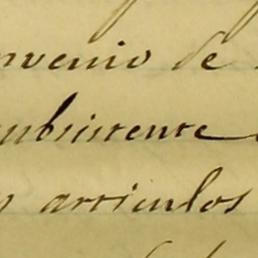 nvenio de
subsistente
articulos